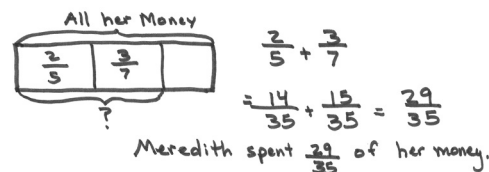 All her Money
2/5 3/7
?
2/5 + 3/7
= 14/35 + 15/35 = 29/35
Meredith spent 29/35 of her money.